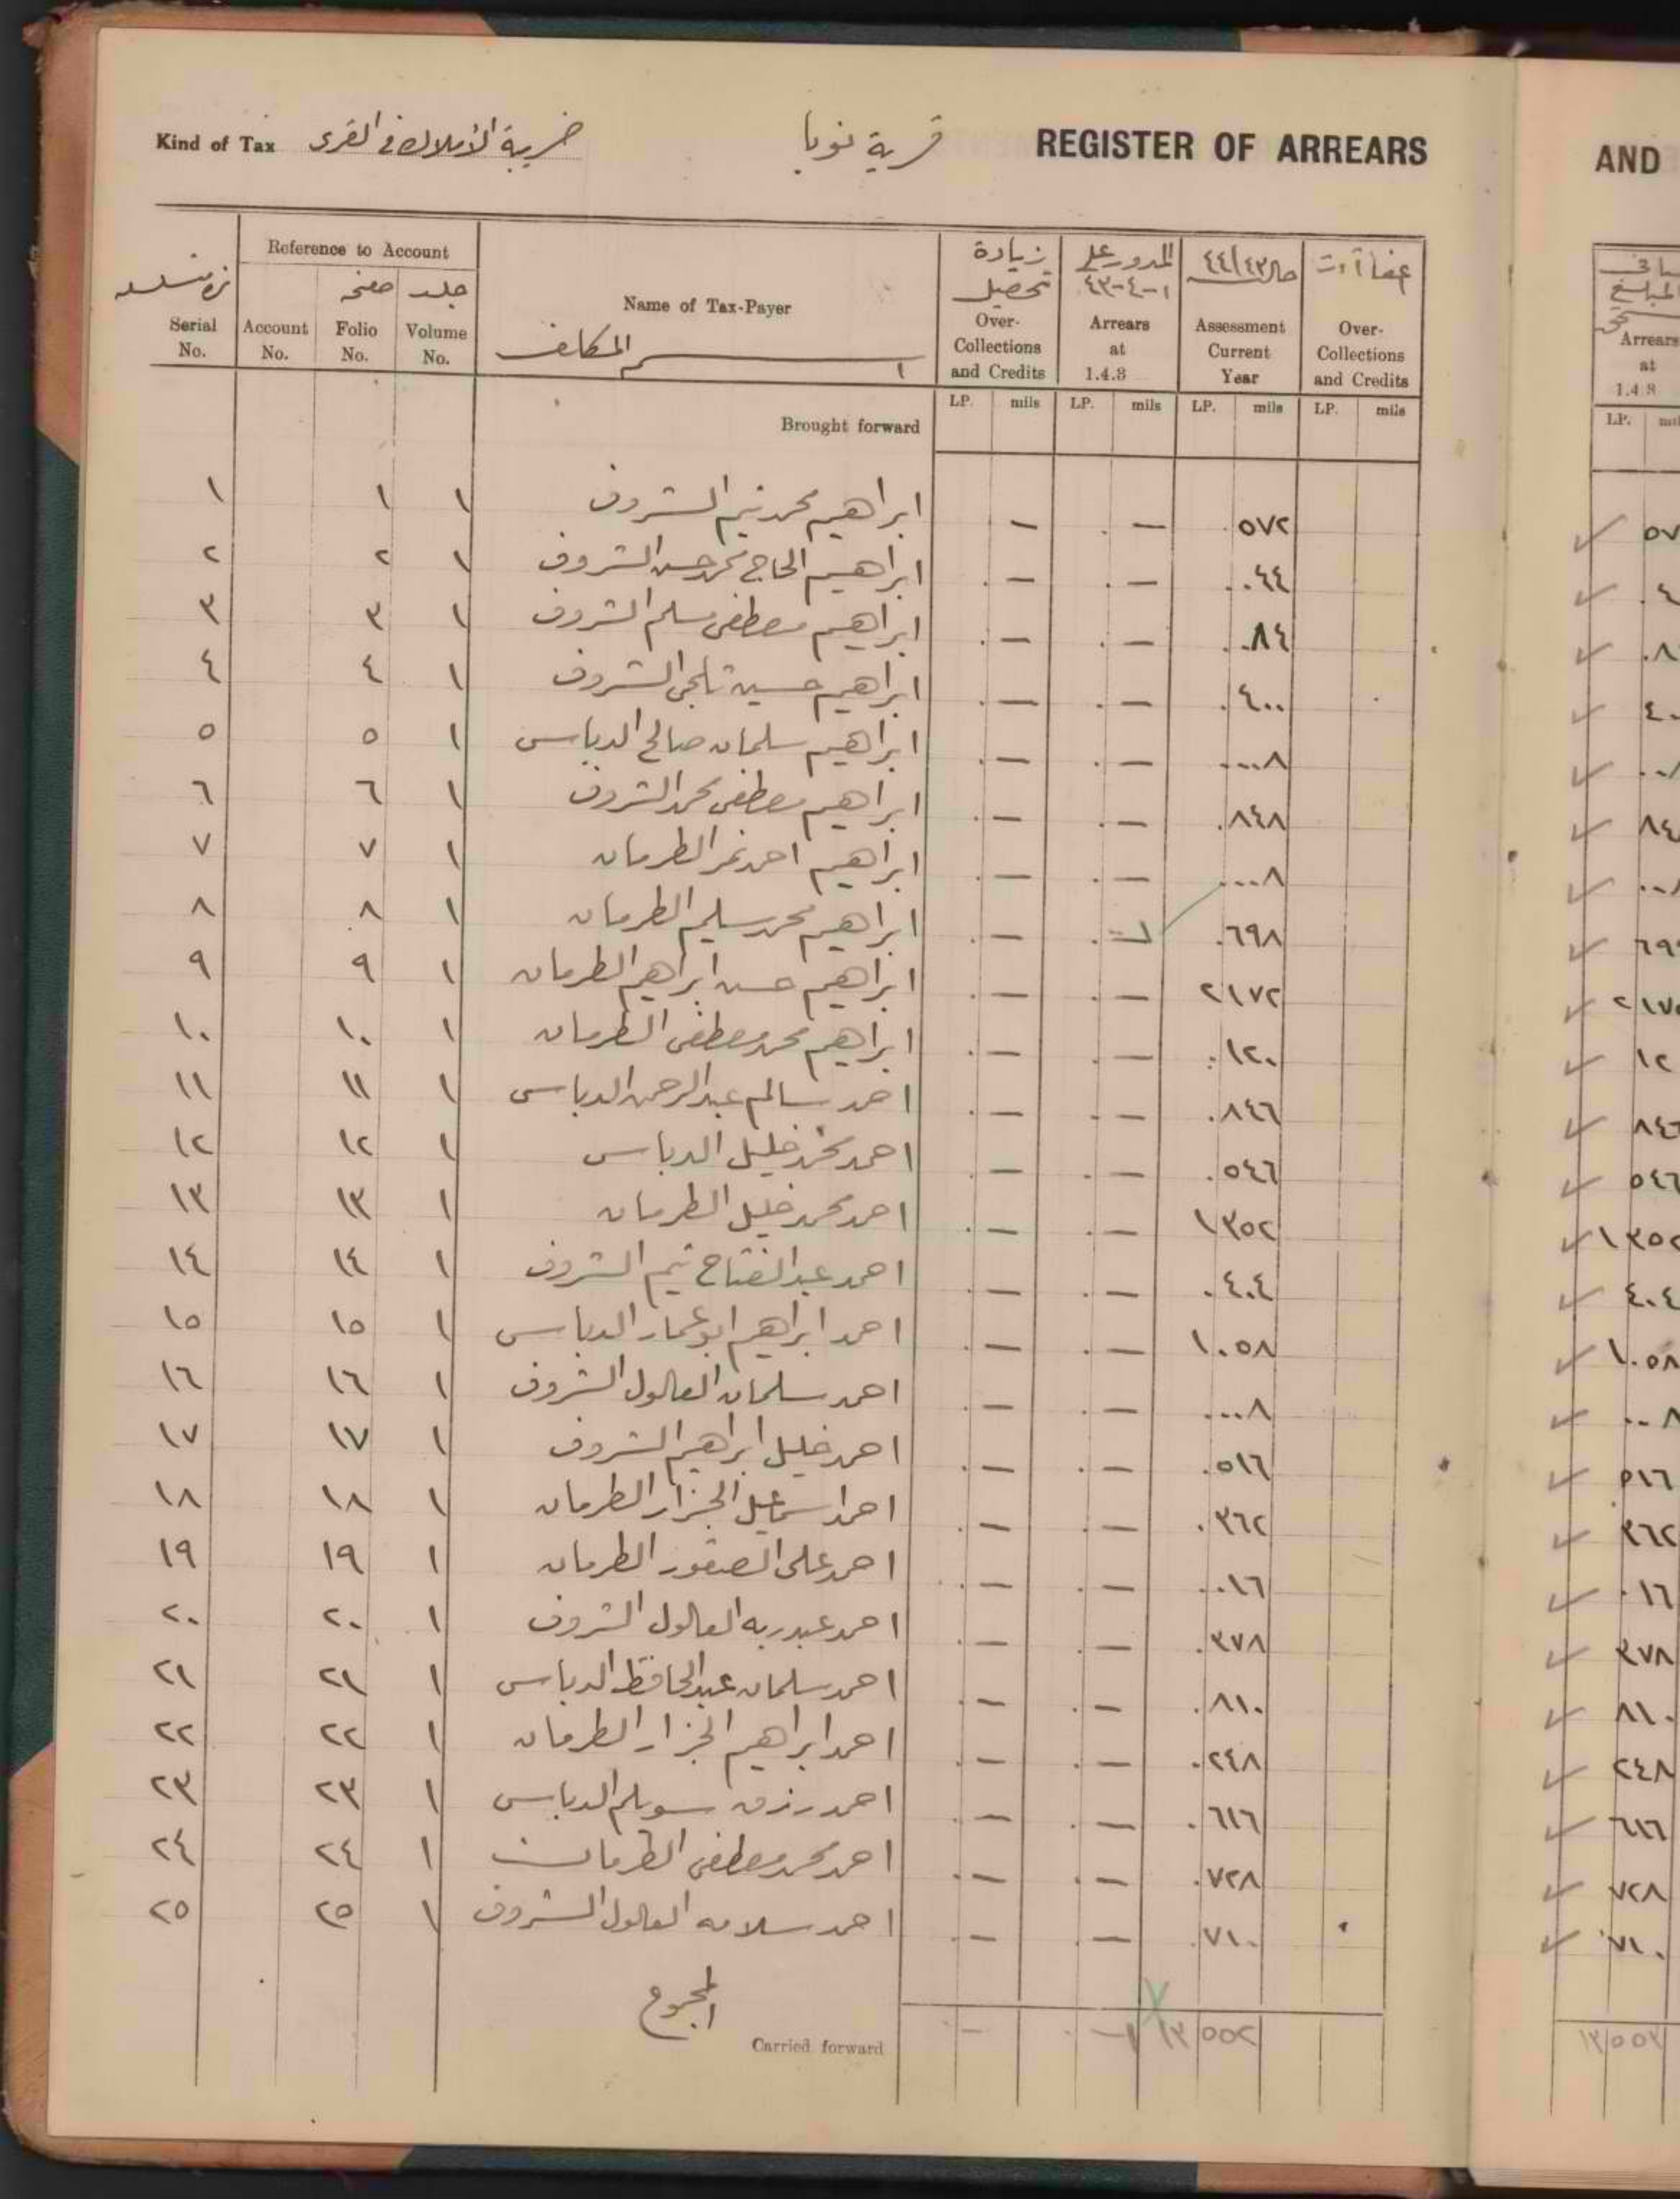 Kind of Tax ضريبة الأملاك في القرى قرية نوبا REGISTER OF ARREARS AND
Reference to Account
جلد صفحه
Serial No. Account No. Folio No. Volume No. Name of Tax-Payer اسم المكلف
زيادة تحصيل Over-Collections and Credits
المدور على ١-٤-٤٣ Arrears at 1.4.3
حال ٤٤/٤٣ Assessment Current Year
Over-Collections and Credits
Arrears at 1.4.3
LP. mils LP. mils LP. mils LP. mils LP.
Brought forward
١ ١ ١ ابراهيم محمد تيم الشروف — — ٠٥٧٢
٢ ٢ ١ ابراهيم الحاج محمد حسن الشروف — — ٠٠٤٤
٣ ٣ ١ ابراهيم مصطفى مسلم الشروف — — ٠٠٨٤
٤ ٤ ١ ابراهيم حسين تلجى الشروف — — ٠٤٠٠
٥ ٥ ١ ابراهيم سلمان صالح الدباس — — ٠٠٠٨
٦ ٦ ١ ابراهيم مصطفى محمد الشروف — — ٠٨٤٨
٧ ٧ ١ ابراهيم احمد نمر الطرمان — — ٠٠٠٨
٨ ٨ ١ ابراهيم محمد سليم الطرمان — — ٠٦٩٨
٩ ٩ ١ ابراهيم حسن ابراهيم الطرمان — — ٢١٧٢ ٢١٧٢
١٠ ١٠ ١ ابراهيم محمد مصطفى الطرمان — — ٠١٢٠
١١ ١١ ١ احمد سالم عبد الرحمن الدباس — — ٠٨٤٦ ٨٤٦
١٢ ١٢ ١ احمد محمد خليل الدباس — — ٠٥٤٦ ٥٤٦
١٣ ١٣ ١ احمد محمد خليل الطرمان — — ١٣٥٢ ١٣٥٢
١٤ ١٤ ١ احمد عبد الفتاح تيم الشروف — — ٠٤٠٤ ٤٠٤
١٥ ١٥ ١ احمد ابراهيم ابو عمار الدباس — — ١٠٥٨ ١٠٥٨
١٦ ١٦ ١ احمد سلمان العالول الشروف — — ٠٠٠٨ ٠٠٨
١٧ ١٧ ١ احمد خليل ابراهيم الشروف — — ٠٥١٦ ٥١٦
١٨ ١٨ ١ احمد اسماعيل الجزار الطرمان — — ٠٣٦٢ ٣٦٢
١٩ ١٩ ١ احمد على الصقور الطرمان — — ٠٠١٦ ٠١٦
٢٠ ٢٠ ١ احمد عبد ربه العالول الشروف — — ٠٣٧٨ ٣٧٨
٢١ ٢١ ١ احمد سلمان عبد الحافظ الدباس — — ٠٨١٠ ٨١٠
٢٢ ٢٢ ١ احمد ابراهيم الجزار الطرمان — — ٠٢٤٨ ٢٤٨
٢٣ ٢٣ ١ احمد رزق سويلم الدباس — — ٠٦١٦ ٦١٦
٢٤ ٢٤ ١ احمد محمد مصطفى الطرمان — — ٠٧٢٨ ٧٢٨
٢٥ ٢٥ ١ احمد سلامه العالول الشروف — — ٠٧١٠ ٧١٠
المجموع
Carried forward — — ١٣ ٥٥٢